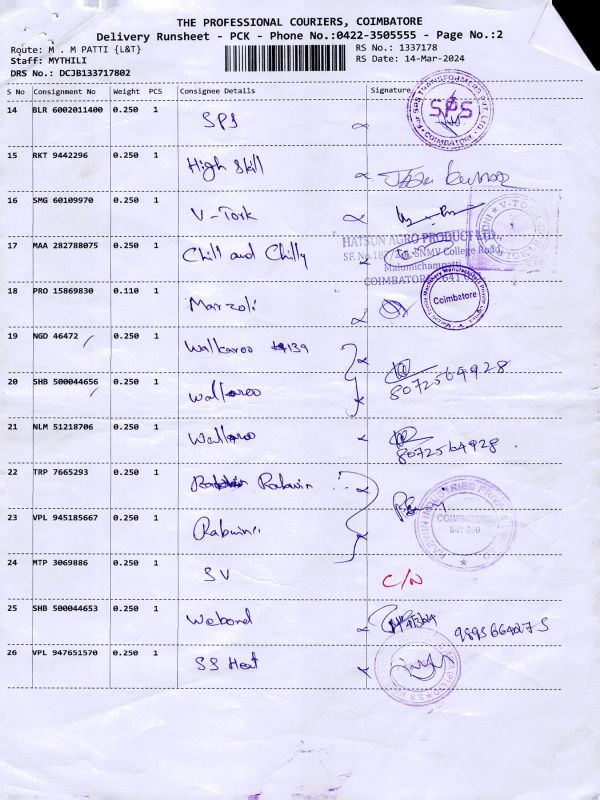 THE PROFESSIONAL COURIERS, COIMBATORE
Delivery Runsheet - PCK - Phone No.:0422-3505555 - Page No.:2
Route: M . M PATTI {L&T}
RS No.: 1337178
Staff: MYTHILI
RS Date: 14-Mar-2024
DRS No.: DCJB133717802
S No Consignment No Weight PCS Consignee Details Signature
14 BLR 6002011400 0.250 1 SPS
SPS TRANSFORMERS PVT. LTD. SPS COIMBATORE
15 RKT 9442296 0.250 1 High Skill
16 SMG 60109970 0.250 1 V-Tork
V-TO
17 MAA 282788075 0.250 1 Chill and Chilly
HATSUN AGRO PRODUCT LTD.,
SNMV College Road,
Malumichampatti
COIMBATORE - 641 0
18 PRO 15869830 0.110 1 Marzoli
Coimbatore
19 NGD 46472 0.250 1 Walkaroo 139
20 SHB 500044656 0.250 1 Walkaroo
8072564928
21 NLM 51218706 0.250 1 Walkaroo
8072564928
22 TRP 7665293 0.250 1 Rabwin
23 VPL 945185667 0.250 1 Rabwin
RABWIN INDUSTRIES PRIVATE
COIMBATORE
641 050
24 MTP 3069886 0.250 1 SV C/N
25 SHB 500044653 0.250 1 Webond
26 VPL 947651570 0.250 1 SS Heat